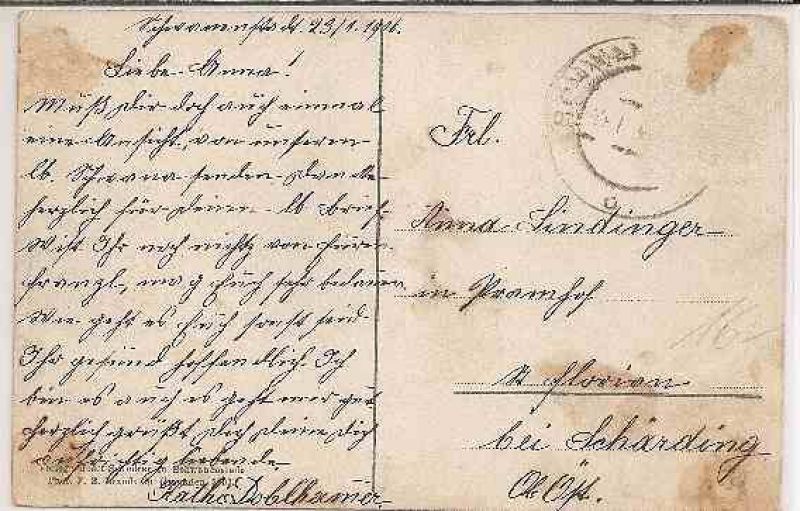 Schwanenstadt. 23/1. 1916.
Liebe Anna!
Muß Dir doch auch einmal
eine Ansicht, von unserm
lb. Schwana senden. Danke
herzlich für Deinen lb Brief.
Wist Ihr noch nichts von Euren
Franzl, mag Euch sehr bedauern
Wie geht es Euch sonst seid
Ihr gesund hoffendlich. Ich
bin es auch es geht mir gut
herzlich grüßt Dich Deine Dich
liebende
Kath. Doblhamer.
Frl.
Anna Lindinger
in Pramhof
St Florian
bei Schärding
Ob Öst.